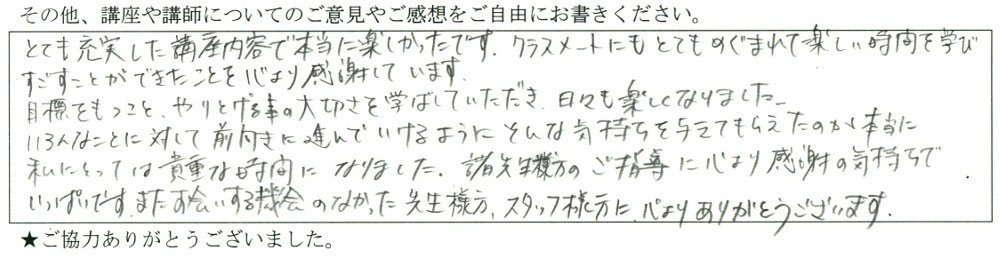 その他、講座や講師についてのご意見やご感想をご自由にお書きください。
とても充実した講座内容で本当に楽しかったです。クラスメートにもとてもめぐまれて楽しい時間を学び
すごすことができたことを心より感謝しています。
目標をもつこと、やりとげる事の大切さを学ばしていただき、日々も楽しくなりました。
いろんなことに対して前向きに進んでいけるようにそんな気持ちを与えてもらえたのが本当に
私にとっては貴重な時間になりました。諸先生様方のご指導に心より感謝の気持ちで
いっぱいです。またお会いする機会のなかった先生様方、スタッフ様方に、心よりありがとうございます。
★ご協力ありがとうございました。